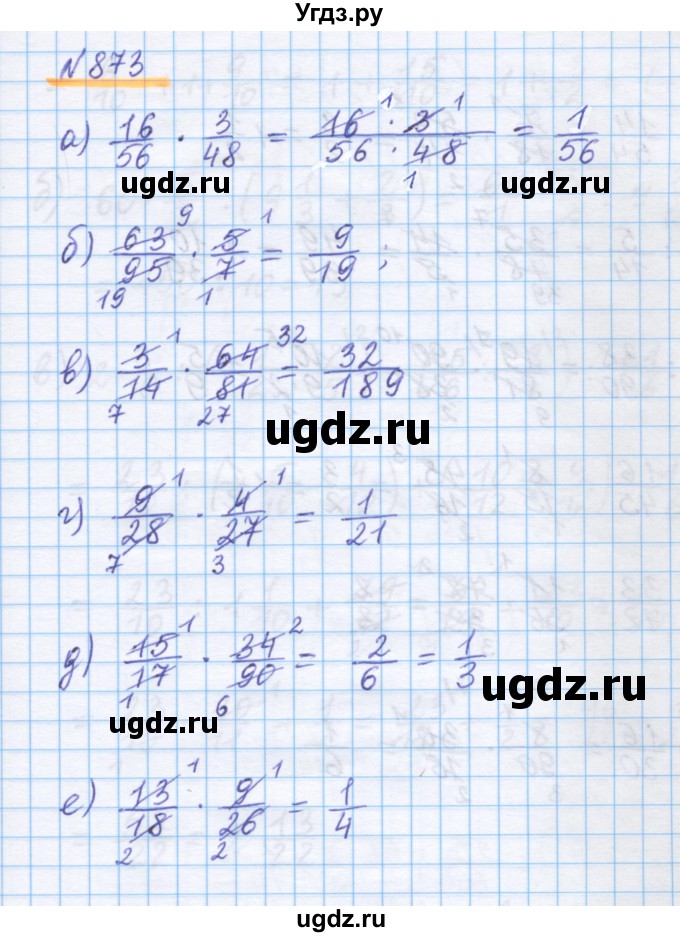 Угдз.ру
№ 873
а) 16/56 · 3/48 = 16¹ · 3¹ / 56 · 48₁ = 1/56
ugdz.ru ugdz.ru
б) 63⁹/95₁₉ · 5¹/7₁ = 9/19 ;
в) 3¹/14₇ · 64³²/81₂₇ = 32/189
ugdz.ru
г) 9¹/28₇ · 4¹/27₃ = 1/21
д) 15¹/17₁ · 34²/90₆ = 2/6 = 1/3
ugdz.ru
ugdz.ru
е) 13¹/18₂ · 9¹/26₂ = 1/4
ugdz.ru
ugdz.ru